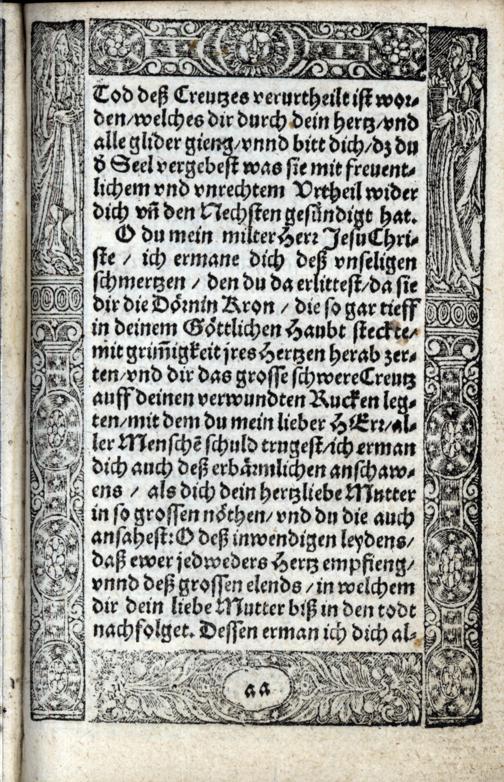 Tod deß Creutzes verurtheilt ist wor-
den/welches dir durch dein hertz/vnd
alle glider gieng/vnnd bitt dich/dz du
d̕ Seel vergebest was sie mit freuent-
lichem vnd vnrechtem Vrtheil wider
dich vñ den Nechsten gesündigt hat.
O du mein milter Herr Jesu Chri-
ste / ich ermane dich deß vnseligen
schmertzen / den du da erlittest/da sie
dir die Dörnin Kron / die so gar tieff
in deinem Göttlichen Haubt steckte/
mit grim̃igkeit jres Hertzen herab zer-
ten/vnd dir das grosse schwere Creutz
auff deinen verwundten Rucken leg-
ten/mit dem du mein lieber HErr/al-
ler Menschē schuld trugest/ich erman
dich auch deß erbärmlichen anschaw-
ens / als dich dein hertzliebe Mutter
in so grossen nöthen/vnd du die auch
ansahest: O deß inwendigen leydens/
daß ewer jedweders Hertz empfieng/
vnnd deß grossen elends / in welchem
dir dein liebe Mutter biß in den todt
nachfolget. Dessen erman ich dich al-
aa